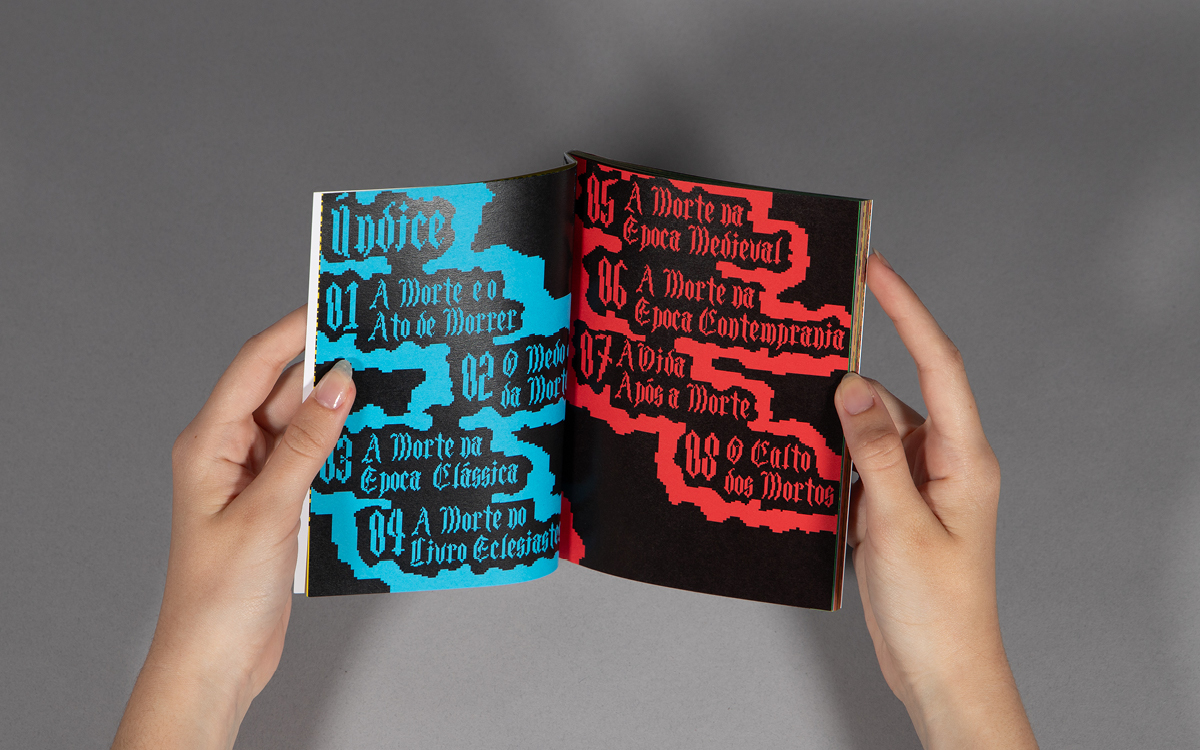 Índice
01 A Morte e o
Ato de Morrer
02 O Medo
da Morte
03 A Morte na
Epoca Clássica
04 A Morte no
Livro Eclesiastes
05 A Morte na
Epoca Medieval
06 A Morte na
Epoca Contemprania
07 A Vida
Após a Morte
08 O Culto
dos Mortos